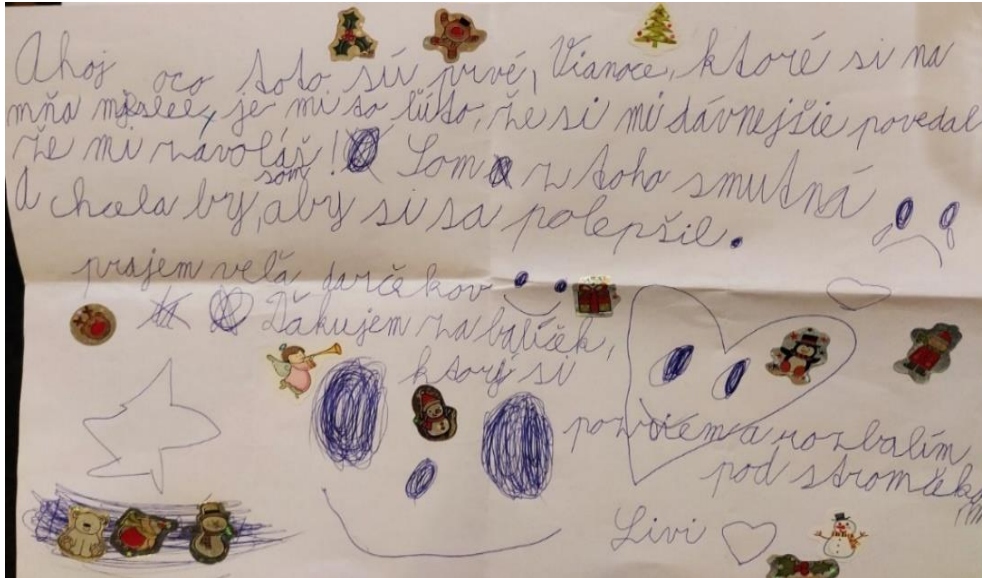 Ahoj oco toto sú prvé, Vianoce, ktoré si na
mňa myslee, je mi to lúto, že si mi dávnejšie povedal
že mi zavoláš! Som z toho smutná
som
A chcela by, aby si sa polepšil.
prajem veľa darčekov
Ďakujem za balíček,
ktorý si
pozriem a rozbalím
pod stromčekom
Livi